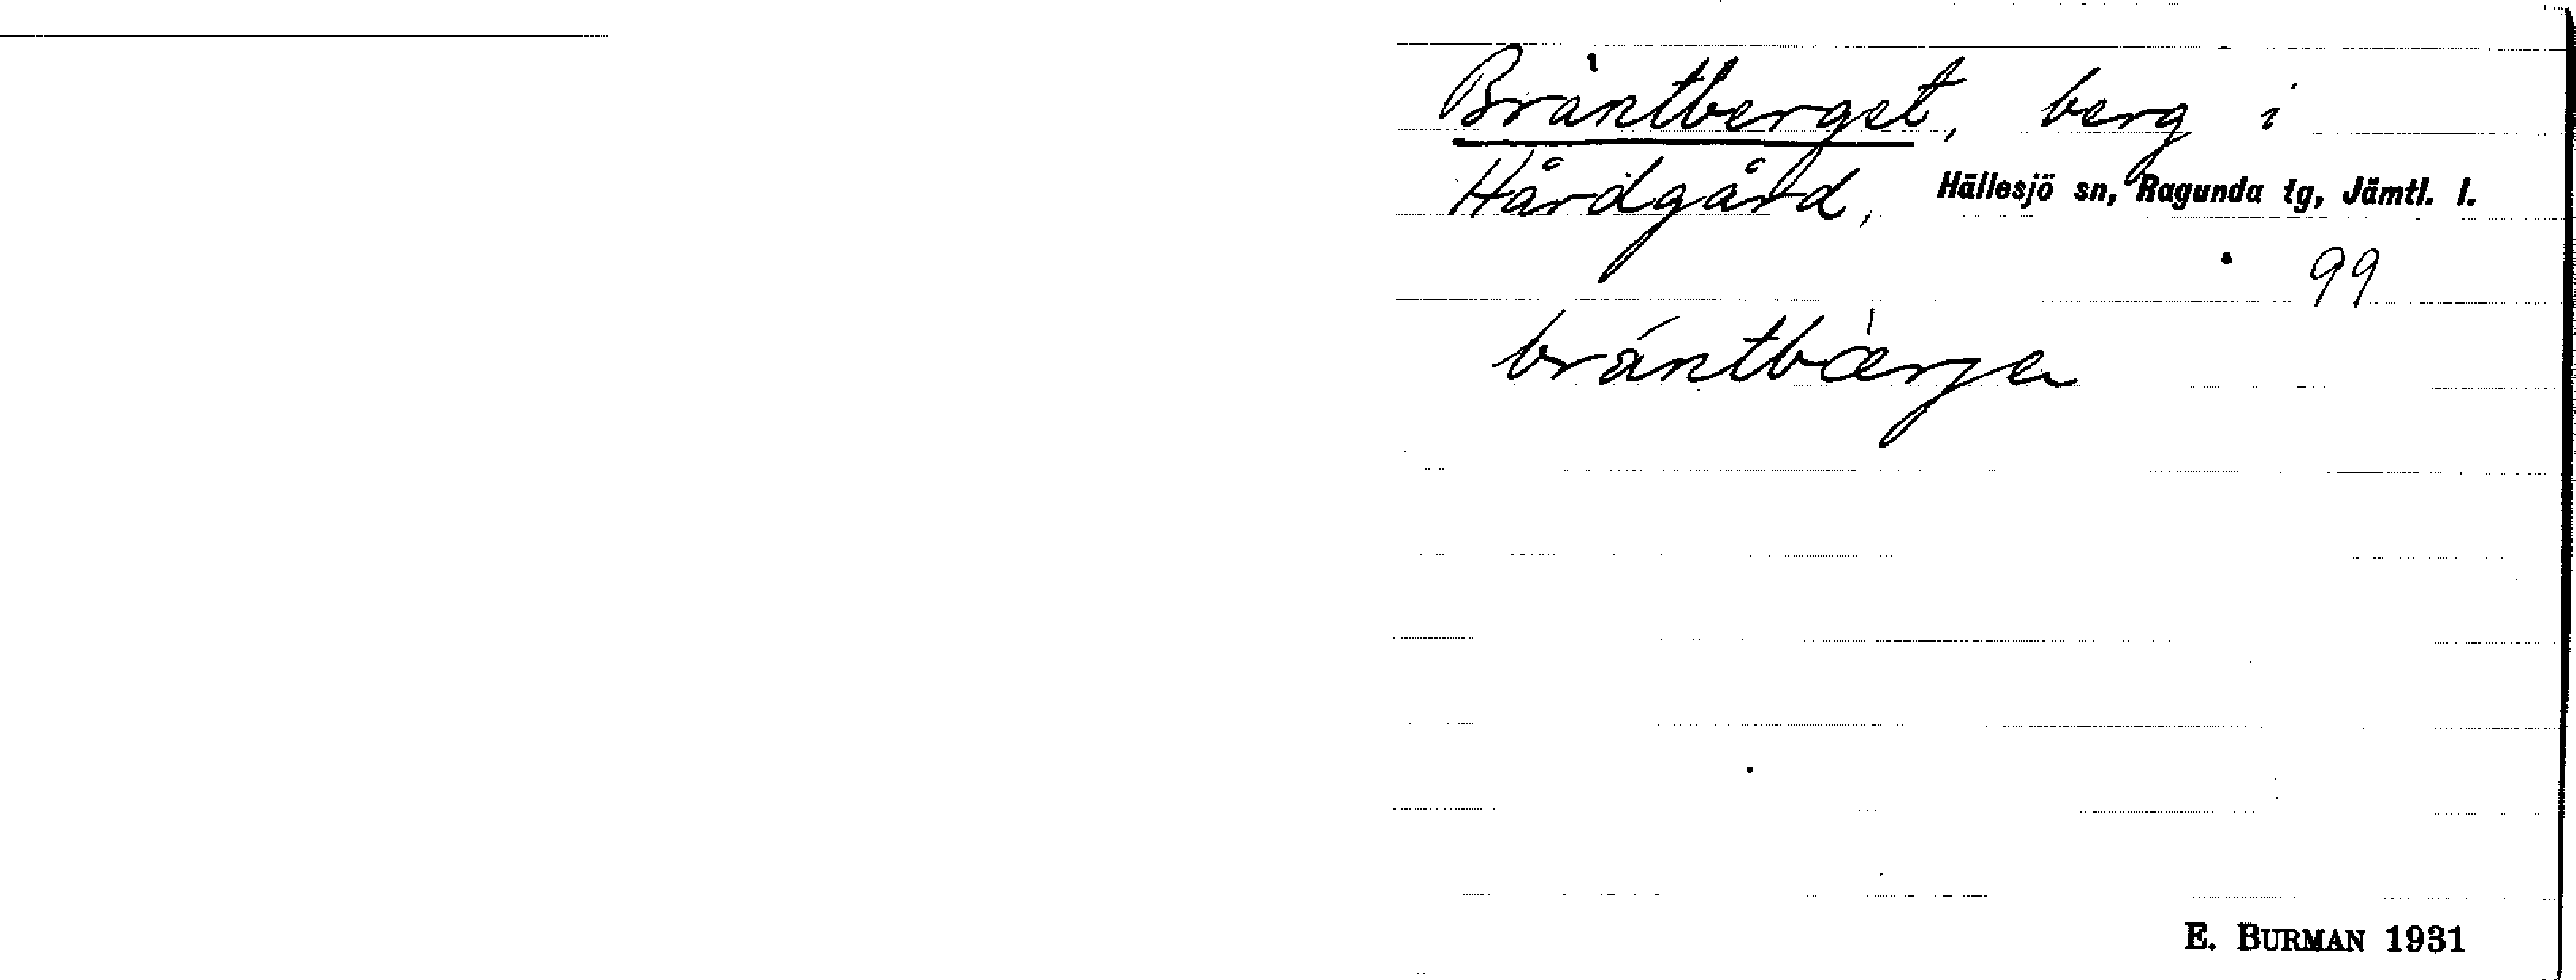 Bräntberget, berg i
Hårdgård, Hällesjö sn, Ragunda tg, Jämtl. l.
99
bräntbærje
E. BURMAN 1931